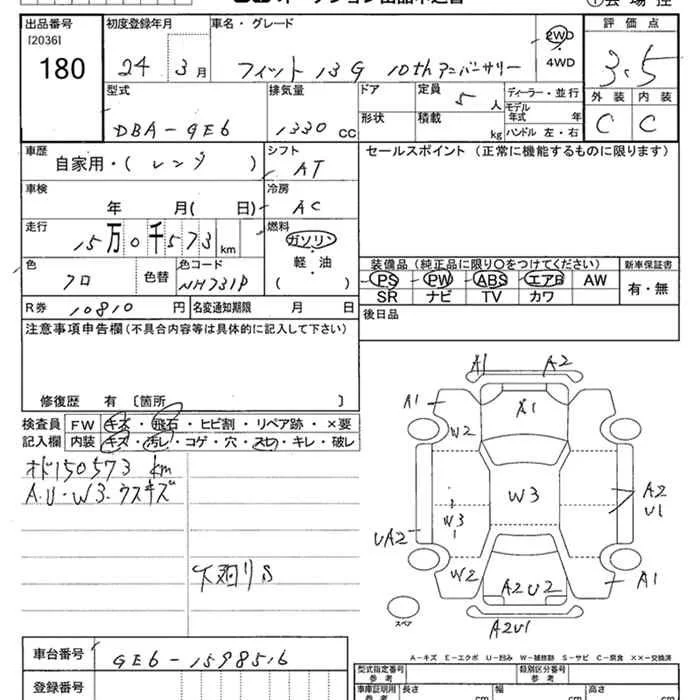 出品番号 初度登録年月 車名・グレード 2WD 評価点
[2036] 180 24 3月 フィット 13G 10thアニバーサリー 4WD 3.5
型式 排気量 ドア 定員 5人 ディーラー・並行 外装 内装
DBA-GE6 1330 CC 形状 積載 kg モデル年式 年 ハンドル 左・右 C C
車歴 自家用・(レンジ) シフト AT セールスポイント (正常に機能するものに限ります)
車検 年 月(日) 冷房 AC
走行 15万0千573km 燃料 ガソリン・軽・油 ( )
色 クロ 色替 色コード NH731P 装備品 (純正品に限り○をつけてください) 新車保証書
PS PW ABS エアB AW 有・無
SR ナビ TV カワ
R券 10810円 名変通知期限 月 日 後日品
注意事項申告欄(不具合内容等は具体的に記入して下さい)
修復歴 有 〔箇所 〕
検査員 FW キズ・飛石・ヒビ割・リペア跡・×要
記入欄 内装 キズ・汚レ・コゲ・穴・スレ・キレ・破レ
オド150573km
A.U・W3.ウスキズ
下廻りS
A1 A2
A1 A1
W2
W3 W3 A2 U1
UA2
W2 A2U2 A1
スペア A2U1
A-キズ E-エクボ U-凹み W-補修跡 S-サビ C-腐食 ××-交換済
車台番号 GE6-1598516
登録番号
型式指定番号 参考 類別区分番号 参考
車庫証明用 参考 長さ cm 幅 cm 高さ cm